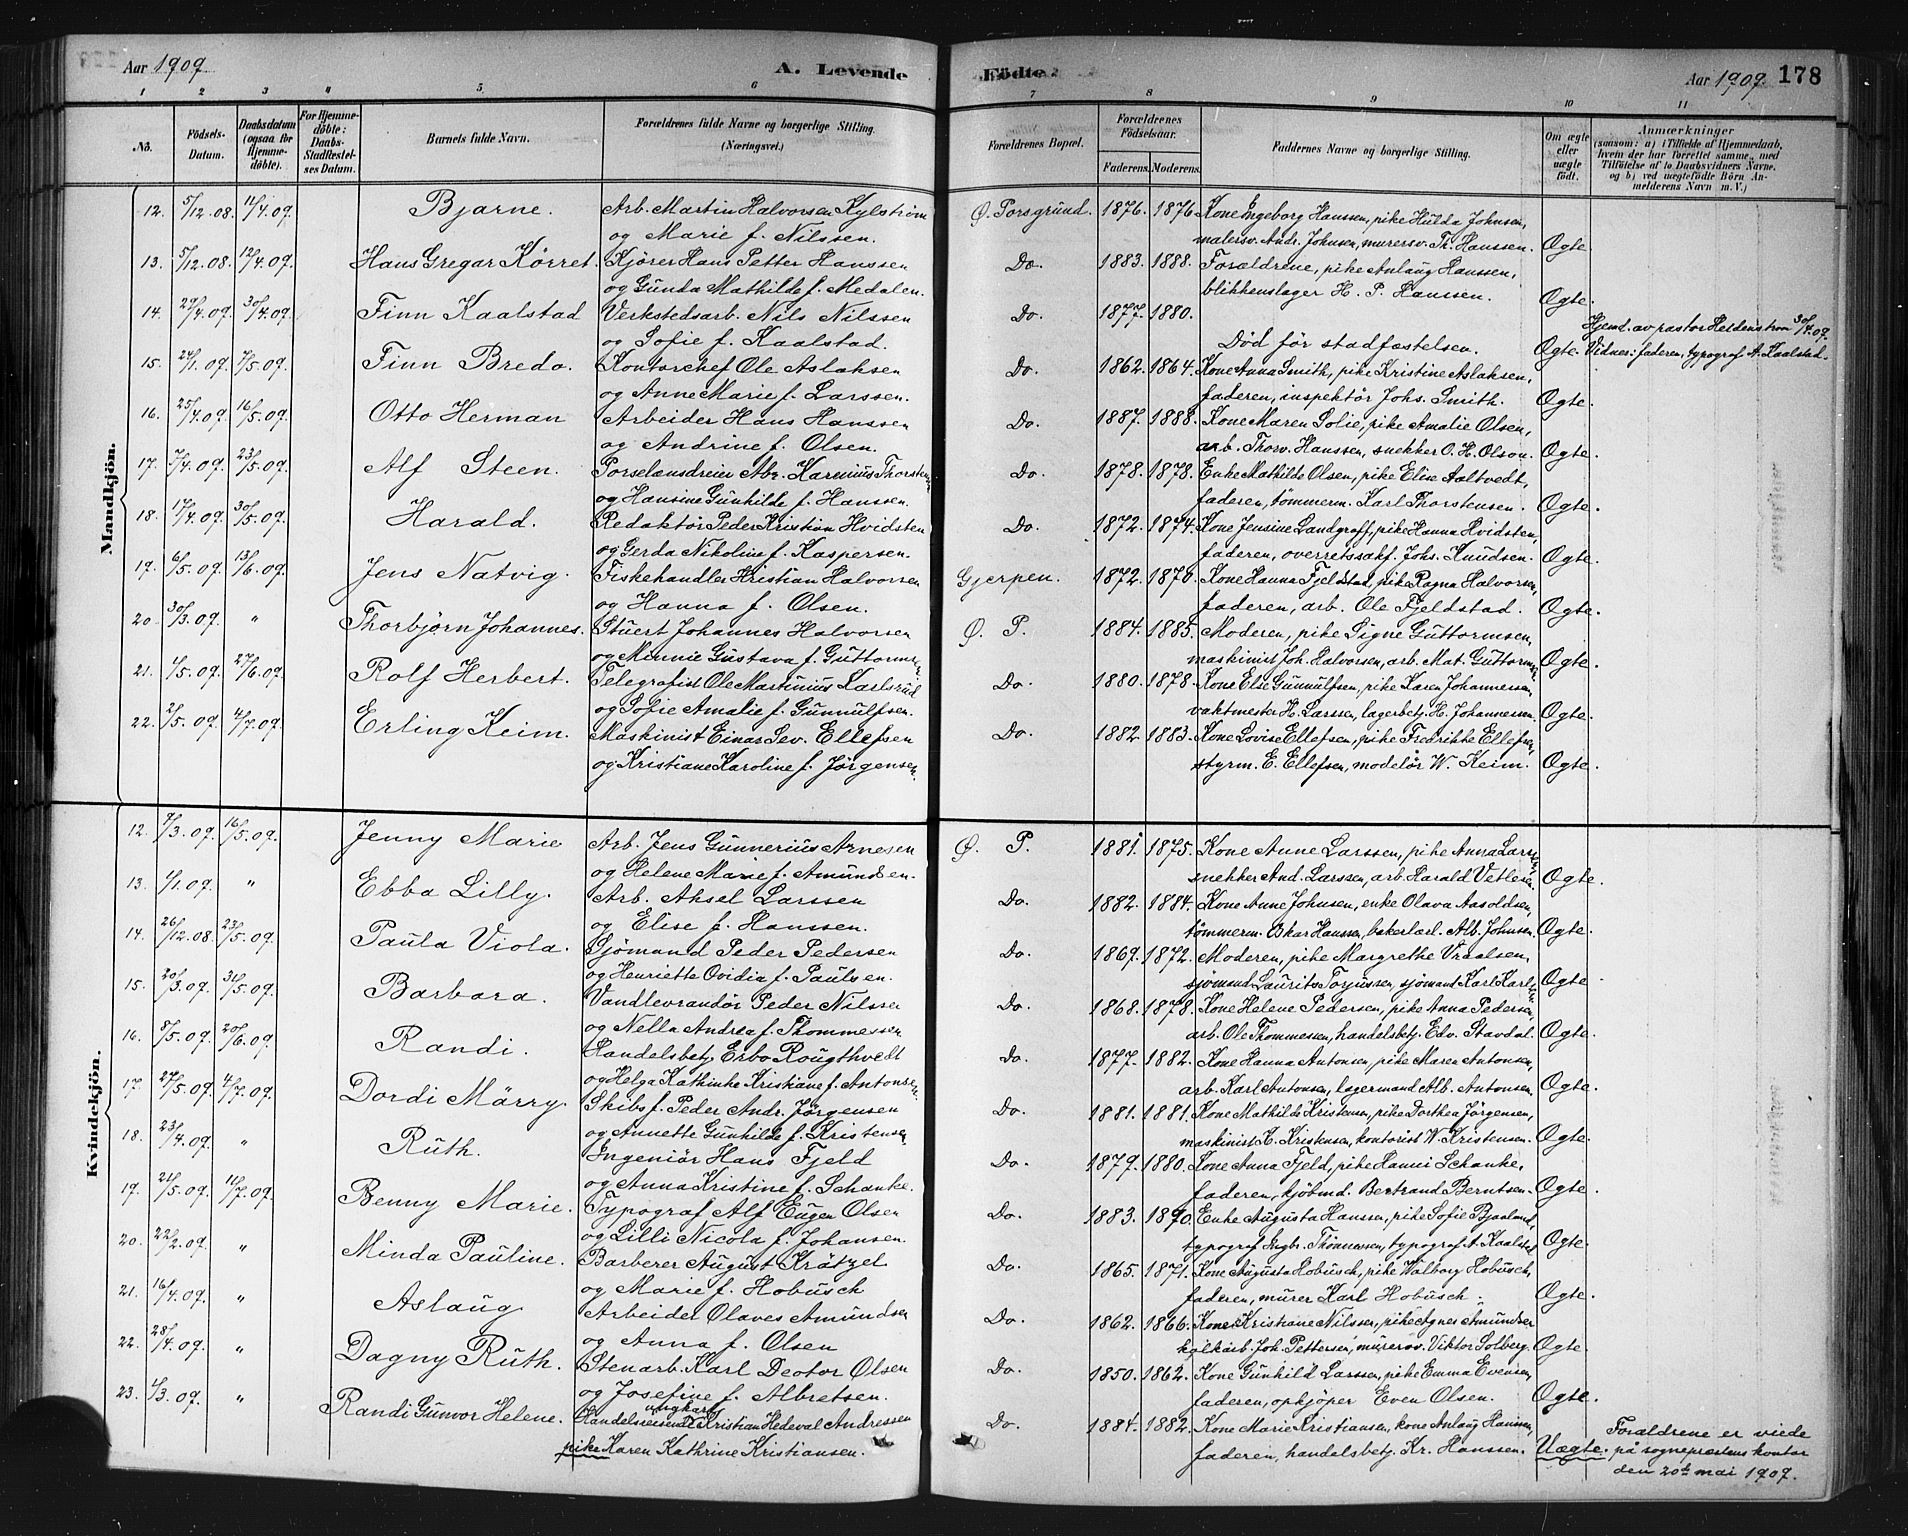 Aar 1909.
A. Levende
1 2 3 4 5 6
No.
Födsels-Datum.
Daabsdatum (ogsaa for Hjemme-döbte).
For Hjemme-döbte: Daabs-Stadfæstel-ses Datum.
Barnets fulde Navn.
Forældrenes fulde Navne og borgerlige Stilling. (Næringsvei.)
Mandkjön.
12. 5/12.08. 11/4.09. Bjarne. Arb. Martin Halvorsen Kylström
og Marie f. Nilssen.
13. 5/12.08. 12/4.09. Hans Gregar Körret. Kjörer Hans Petter Hanssen
og Gunda Mathilde f. Medalen.
14. 29/4.09. 30/4.09. Finn Kaalstad Verkstedsarb. Nils Nilssen
og Sofie f. Kaalstad.
15. 24/1.09. 7/5.09. Finn Bredo. Kontorchef Ole Aslaksen
og Anne Marie f. Larssen.
16. 25/4.09. 16/5.09. Otto Herman Arbeider Hans Hanssen
og Andrine f. Olsen.
17. 7/4.09. 23/5.09. Alf Steen.
og Hansine Gunhilde f. Hanssen.
18. 17/4.09. 30/5.09. Harald. Redaktör Peder Kristian Hvidsten
og Gerda Nikoline f. Kaspersen.
19. 6/5.09. 13/6.09. Jens Natvig. Fiskehandler Kristian Halvorsen
og Hanna f. Olsen.
20. 30/3.09. " Thorbjörn Johannes. Stuert Johannes Halvorsen
og Minnie Gustava f. Guttormsen.
21. 1/5.09. 27/6.09. Rolf Herbert. Telegrafist Ole Martinius Karlsrud
og Sofie Amalie f. Gunnulfsen.
22. 2/5.09. 4/7.09. Erling Keim. Maskinist Einar Sev. Ellefsen
og Kristiane Karoline f. Jörgensen.
Kvindekjön.
12. 7/3.09. 16/5.09. Jenny Marie Arb. Jens Gunnerius Arnesen
og Helene Marie f. Amundsen.
13. 4/1.09. " Ebba Lilly. Arb. Aksel Larssen
og Elise f. Hanssen.
14. 26/12.08. 23/5.09. Paula Viola. Sjömand Peder Pedersen
og Henriette Ovidia f. Paulsen.
15. 20/3.09. 31/5.09. Barbara. Vandlevrandör Peder Nilssen
og Nella Andrea f. Thommessen
16. 8/5.09. 20/6.09. Randi. Handelsbetj. Erbo Rougthvedt
og Helga Kathinka Kristiane f. Antonsen.
17. 27/5.09. 4/7.09. Dordi Märry. Skibsf. Peder Andr. Jörgensen
og Annette Gunhilde f. Kristensen.
18. 23/4.09. " Ruth. Ingeniör Hans Fjeld
og Anna Kristine f. Schanke.
19. 21/5.09. 11/7.09. Benny Marie. Typograf Alf Eugen Olsen
og Lilli Nicola f. Johansen.
20. 22/2.09. " Minda Pauline. Barberer August Krätzel
og Marie f. Hobusch
21. 16/4.09. " Aslaug Arbeider Olaves Amundsen
og Anna f. Olsen
22. 28/4.09. " Dagny Ruth. Stenarb. Karl Deotor Olsen
og Josefine f. Albretsen.
23. 4/3.09. " Randi Gunvor Helene. Handelsreisende ungkar Kristian Hedeval Andressen
pike Karen Kathrine Kristiansen.
Födte.
Aar 1909. 178
7 8 9 10 11
Forældrenes Bopæl.
Forældrenes Födselsaar.
Faderens. Moderens.
Faddernes Navne og borgerlige Stilling.
Om ægte eller uægte födt.
Anmærkninger
(saasom: a) i Tilfælde af Hjemmedaab, hvem der har forrettet samme, med Tilföielse af to Daabsvidners Navne, og b) ved uægtefödte Börn An-melderens Navn m. V.)
Ø. Porsgrund. 1876. 1876. Kone Ingeborg Hanssen, pike Hulda Johnsen,
malersv. Andr. Johnsen, murersv. Th. Hanssen. Ogte.
Do. 1883. 1888. Forældrene, pike Anlaug Hanssen,
blikkenslager H. P. Hanssen. Ogte.
Do. 1877. 1880. Hjemd. av pastor Heldenstrom 30/4.09.
Död för stadfæstelsen. Ogte. Vidner: faderen, typograf A. Kaalstad.
Do. 1862. 1864. Kone Anna Smith, pike Kristine Aslaksen,
faderen, inspektör Johs. Smith. Ogte.
Do. 1887. 1888. Kone Maren Solie, pike Amalie Olsen,
arb. Thorv. Hanssen, snekker O. H. Olson. Ogte.
Do. 1878. 1878. Enke Mathilde Olsen, pike Elise Aaltvedt,
faderen, tömmerm. Karl Thorstensen. Ogte.
Do. 1872. 1874. Kone Jensine Landgraff, pike Hanna Hvidsten,
faderen, overretssakf. Johs. Knudsen. Ogte.
Gjerpen. 1872. 1870. Kone Hanna Fjeldstad, pike Ragna Halvorsen,
faderen, arb. Ole Fjeldstad. Ogte.
Ø. P. 1884. 1885. Moderen, pike Signe Guttormsen,
maskinist Joh. Halvorsen, arb. Mat. Guttormsen. Ogte.
Do. 1880. 1878. Kone Else Gunnulfsen, pike Karen Johannessen,
vaktmester H. Larssen, lagerbetj. H. Johannessen. Ogte.
Do. 1882 1883. Kone Lovise Ellefsen, pike Fredrikke Ellefsen,
styrm. E. Ellefsen, modelör W. Keim. Ogte.
Ø. P. 1881. 1875. Kone Anne Larssen, pike Anna Larssen,
snekker And. Larssen, arb. Harald Vetlesen. Ogte.
Do. 1882. 1884. Kone Anne Johnsen, enke Olava Aasoldsen,
tömmerm. Oskar Hanssen, bakerlærl. Alb. Johnsen. Ogte.
Do. 1869. 1872. Moderen, pike Margrethe Vraalsen,
sjömand Laurits Torjussen, sjömand Karl Karlsen. Ogte.
Do. 1868. 1878. Kone Helene Pedersen, pike Anna Pedersen,
arb. Ole Thommessen, handelsbetj. Edv. Stavdal. Ogte.
Do. 1877. 1882. Kone Hanna Antonsen, pike Maren Antonsen,
arb. Karl Antonsen, lagermand Alb. Antonsen. Ogte.
Do. 1881. 1881. Kone Mathilde Kristensen, pike Dorthea Jörgensen,
maskinist K. Kristensen, kontorist W. Kristensen. Ogte.
Do. 1879. 1880. Kone Anna Fjeld, pike Hanni Schanke,
faderen, kjöbmd. Bertrand Berntsen. Ogte.
Do. 1883. 1890. Enke Augusta Hanssen, pike Sofie Bjaaland,
typograf Ingbr. Thönnessen, typograf A. Kaalstad. Ogte.
Do. 1865. 1871. Kone Augusta Hobusch, pike Walborg Hobusch,
faderen, murer Karl Hobusch. Ogte.
Do. 1862. 1866. Kone Kristiane Nilssen, pike Agnes Amundsen
kalkarb. Joh. Pettersen, murersv. Viktor Solberg. Ogte.
Do. 1850. 1862. Kone Gunhild Larssen, pike Emma Evensen,
faderen, opkjöper Even Olsen. Ogte.
Do. 1884. 1882. Kone Marie Kristiansen, kone Anlaug Hanssen, Forældrene er viede
faderen, handelsbetj. Kr. Hanssen. Uægte. på sogneprestens kontor
den 20de mai 1909.